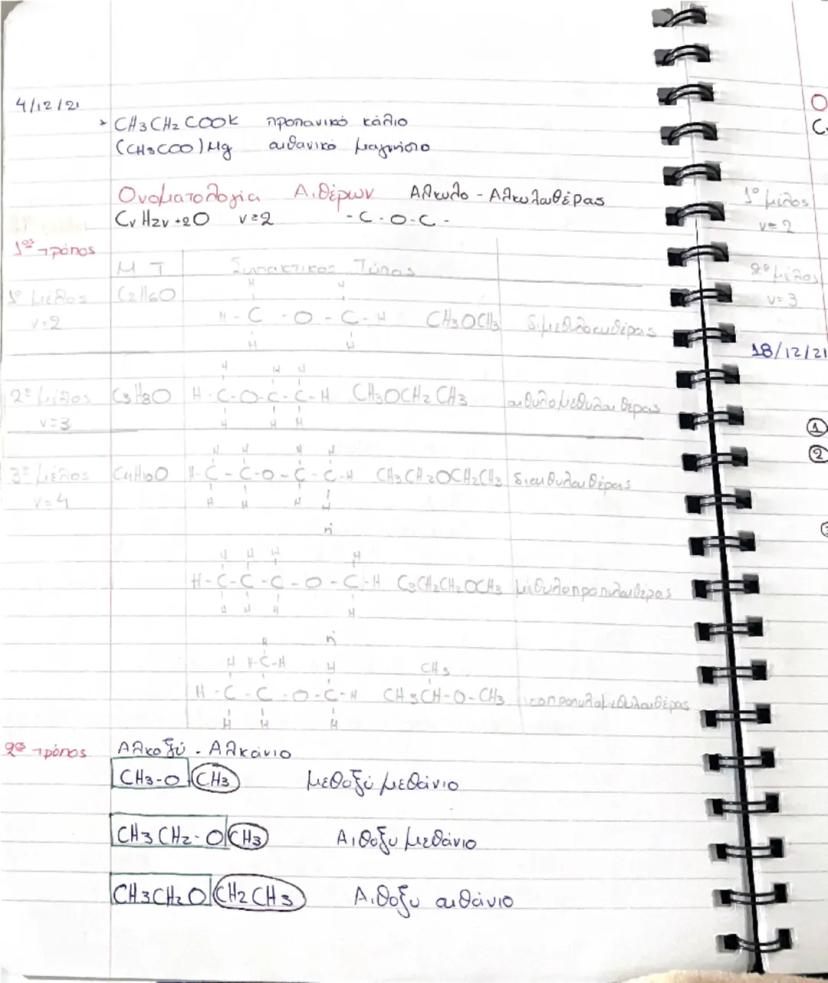 4/12/21
* CH3CH2COOK προπανικό κάλιο
(CH3COO)Mg αιθανικό μαγνήσιο
Ονοματολογία Αιθέρων Αλκυλο - Αλκυλαιθέρας
CνH2ν+2O ν=2 -C-O-C-
1ος τρόπος
Μ Τ Συντακτικος Τύπος
1ο μέλος C2H6O
ν=2
H H
H-C-O-C-H CH3OCH3 διμεθυλαιθέρας
H H
H H H
2ο μέλος C3H8O H-C-O-C-C-H CH3OCH2CH3 αιθυλομεθυλαιθέρας
ν=3
H H H
H H H H
3ο μέλος C4H10O H-C-C-O-C-C-H CH3CH2OCH2CH3 διαιθυλαιθέρας
ν=4
H H H H
H
H H H H
H-C-C-C-O-C-H C3CH2CH2OCH3 μεθυλοπροπυλαιθέρας
H H H H
H H
H H-C-H H CH3
H-C-C-O-C-H CH3CH-O-CH3 ισοπροπυλομεθυλαιθέρας
H H H
2ος τρόπος Αλκοξύ - Αλκάνιο
CH3-O CH3 μεθοξύ μεθάνιο
CH3CH2-O CH3 Αιθοξυ μεθάνιο
CH3CH2O CH2CH3 Αιθοξυ αιθάνιο
Ο
C
1ο μέλος
ν=2
2ο μέλος
ν=3
18/12/21
1
2